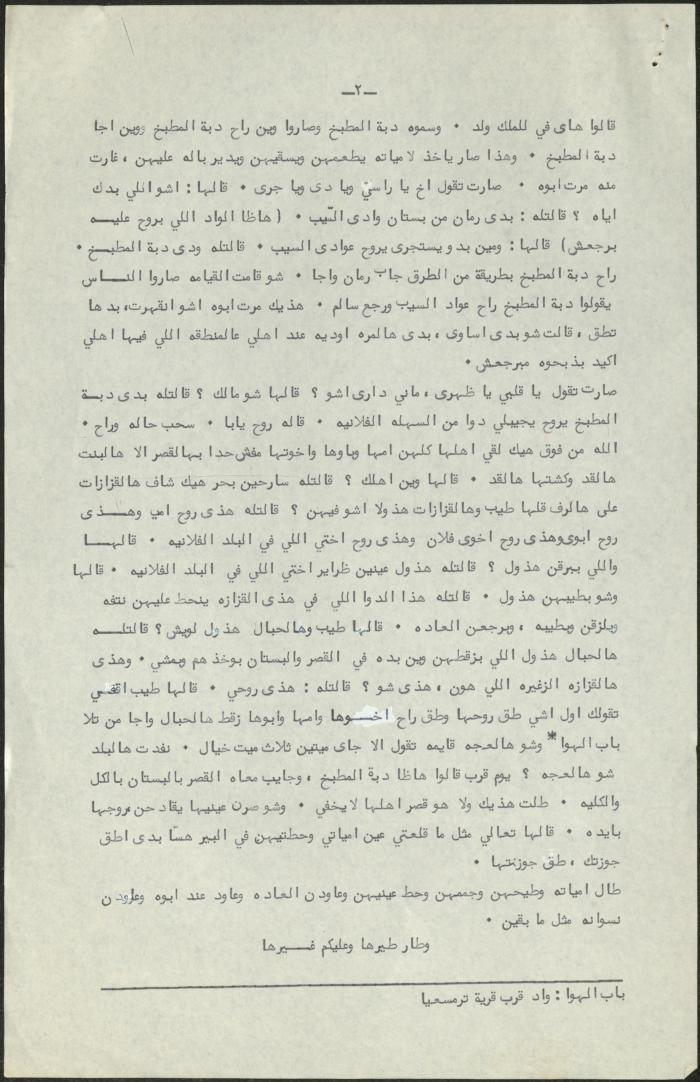 —٢—
قالوا هاى في للملك ولد ٠ وسموه دبة المطبخ وصاروا وين راح دبة المطبخ ووين اجا
دبة المطبخ ٠ وهذا صار ياخذ لامياته يطعمهن ويسقيهن ويدير باله عليهن ، غارت
منه مرت ابوه ٠ صارت تقول اخ يا راسي ويا دى ويا جرى ٠ قالها : اشو اللي بدك
اياه ؟ قالتله : بدى رمان من بستان وادى السّيب ٠ ( هاظا الواد اللي بروح عليــه
برجعش ) قالها : ومين بد و يستجرى يروح عوادى السيب ٠ قالتله ودى دبة المطبــخ ٠
راح دبة المطبخ بطريقة من الطرق جاب رمان واجا ٠ شو قامت القيامه صاروا النــاس
يقولوا دبة المطبخ راح عواد السيب ورجع سالم ٠ هذيك مرت ابوه اشو انقهرت، بدها
تطق ، قالت شو بدى اساوى ، بدى هالمره اوديه عند اهلي عالمنطقه اللي فيها اهلي
اكيد بذبحوه مبرجعش ٠
صارت تقول يا قلبي يا ظهرى ، ماني دارى اشو ؟ قالها شو مالك ؟ قالتله بدى دبــة
المطبخ يروح يجيبلي دوا من السهله الفلانيه ٠ قاله روح يابا ٠ سحب حاله وراح ٠
الله من فوق هيك لقي اهلها كلهن امها وباوها واخوتها مفش حدا بهالقصر الا هالبنت
هالقد وكشتها هالقد ٠ قالها وين اهلك ؟ قالتله سارحين بحر هيك شاف هالقزازات
على هالرف قلها طيب وهالقزازات هذولا اشو فيهن ؟ قالتله هذى روح امي وهــذى
روح ابوى وهذى روح اخوى فلان وهذى روح اختي اللي في البلد الفلانيه ٠ قالهــا
واللي ببرقن هذول ؟ قالتله هذول عينين ظراير اختي اللي في البلد الفلانيه ٠ قالها
وشو بطيبهن هذول ٠ قالتله هذا الدوا اللي في هذى القزازه ينحط عليهن نتفه
وبلزقن وبطيبه ، وبرجعن العاده ٠ قالها طيب وهالحبال هذول لويش ؟ قالتلــه
هالحبال هذول اللي بزقطهن وين بده في القصر والبستان بوخذهم وبمشي ٠ وهذى
هالقزازه الزغيره اللي هون ، هذى شو ؟ قالتله : هذى روحي ٠ قالها طيب اقضي
تقولك اول اشي طق روحها وطق راح اخــوها وامها وابوها زقط هالحبال واجا من تلا
باب الهوا* وشو هالعجه قايمه تقول الا جاى ميتين ثلاث ميت خيال ٠ نفدت هالبلد
شو هالعجه ؟ يوم قرب قالوا هاظا دبة المطبخ ، وجايب معاه القصر بالبستان بالكل
والكليه ٠ طلت هذيك ولا هو قصر اهلها لايخفي ٠ وشو صرن عينيها يقادحن، روجها
بايده ٠ قالها تعالي مثل ما قلعتي عين امياتي وحطتيهن في البير هسّا بدى اطق
جوزتك ، طق جوزتها ٠
طال امياته وطيحهن وجممهن وحط عينيهن وعاودن العاده وعاود عند ابوه وعاودن
نسوانه مثل ما بقين ٠
وطار طيرها وعليكم غــيرها
باب الهوا : واد قرب قرية ترمسعيا